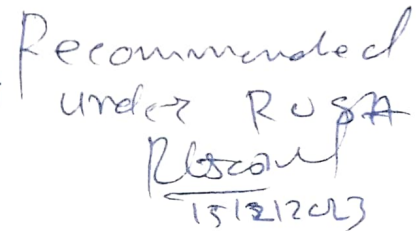 Recommended
under RUSA
15/2/2023